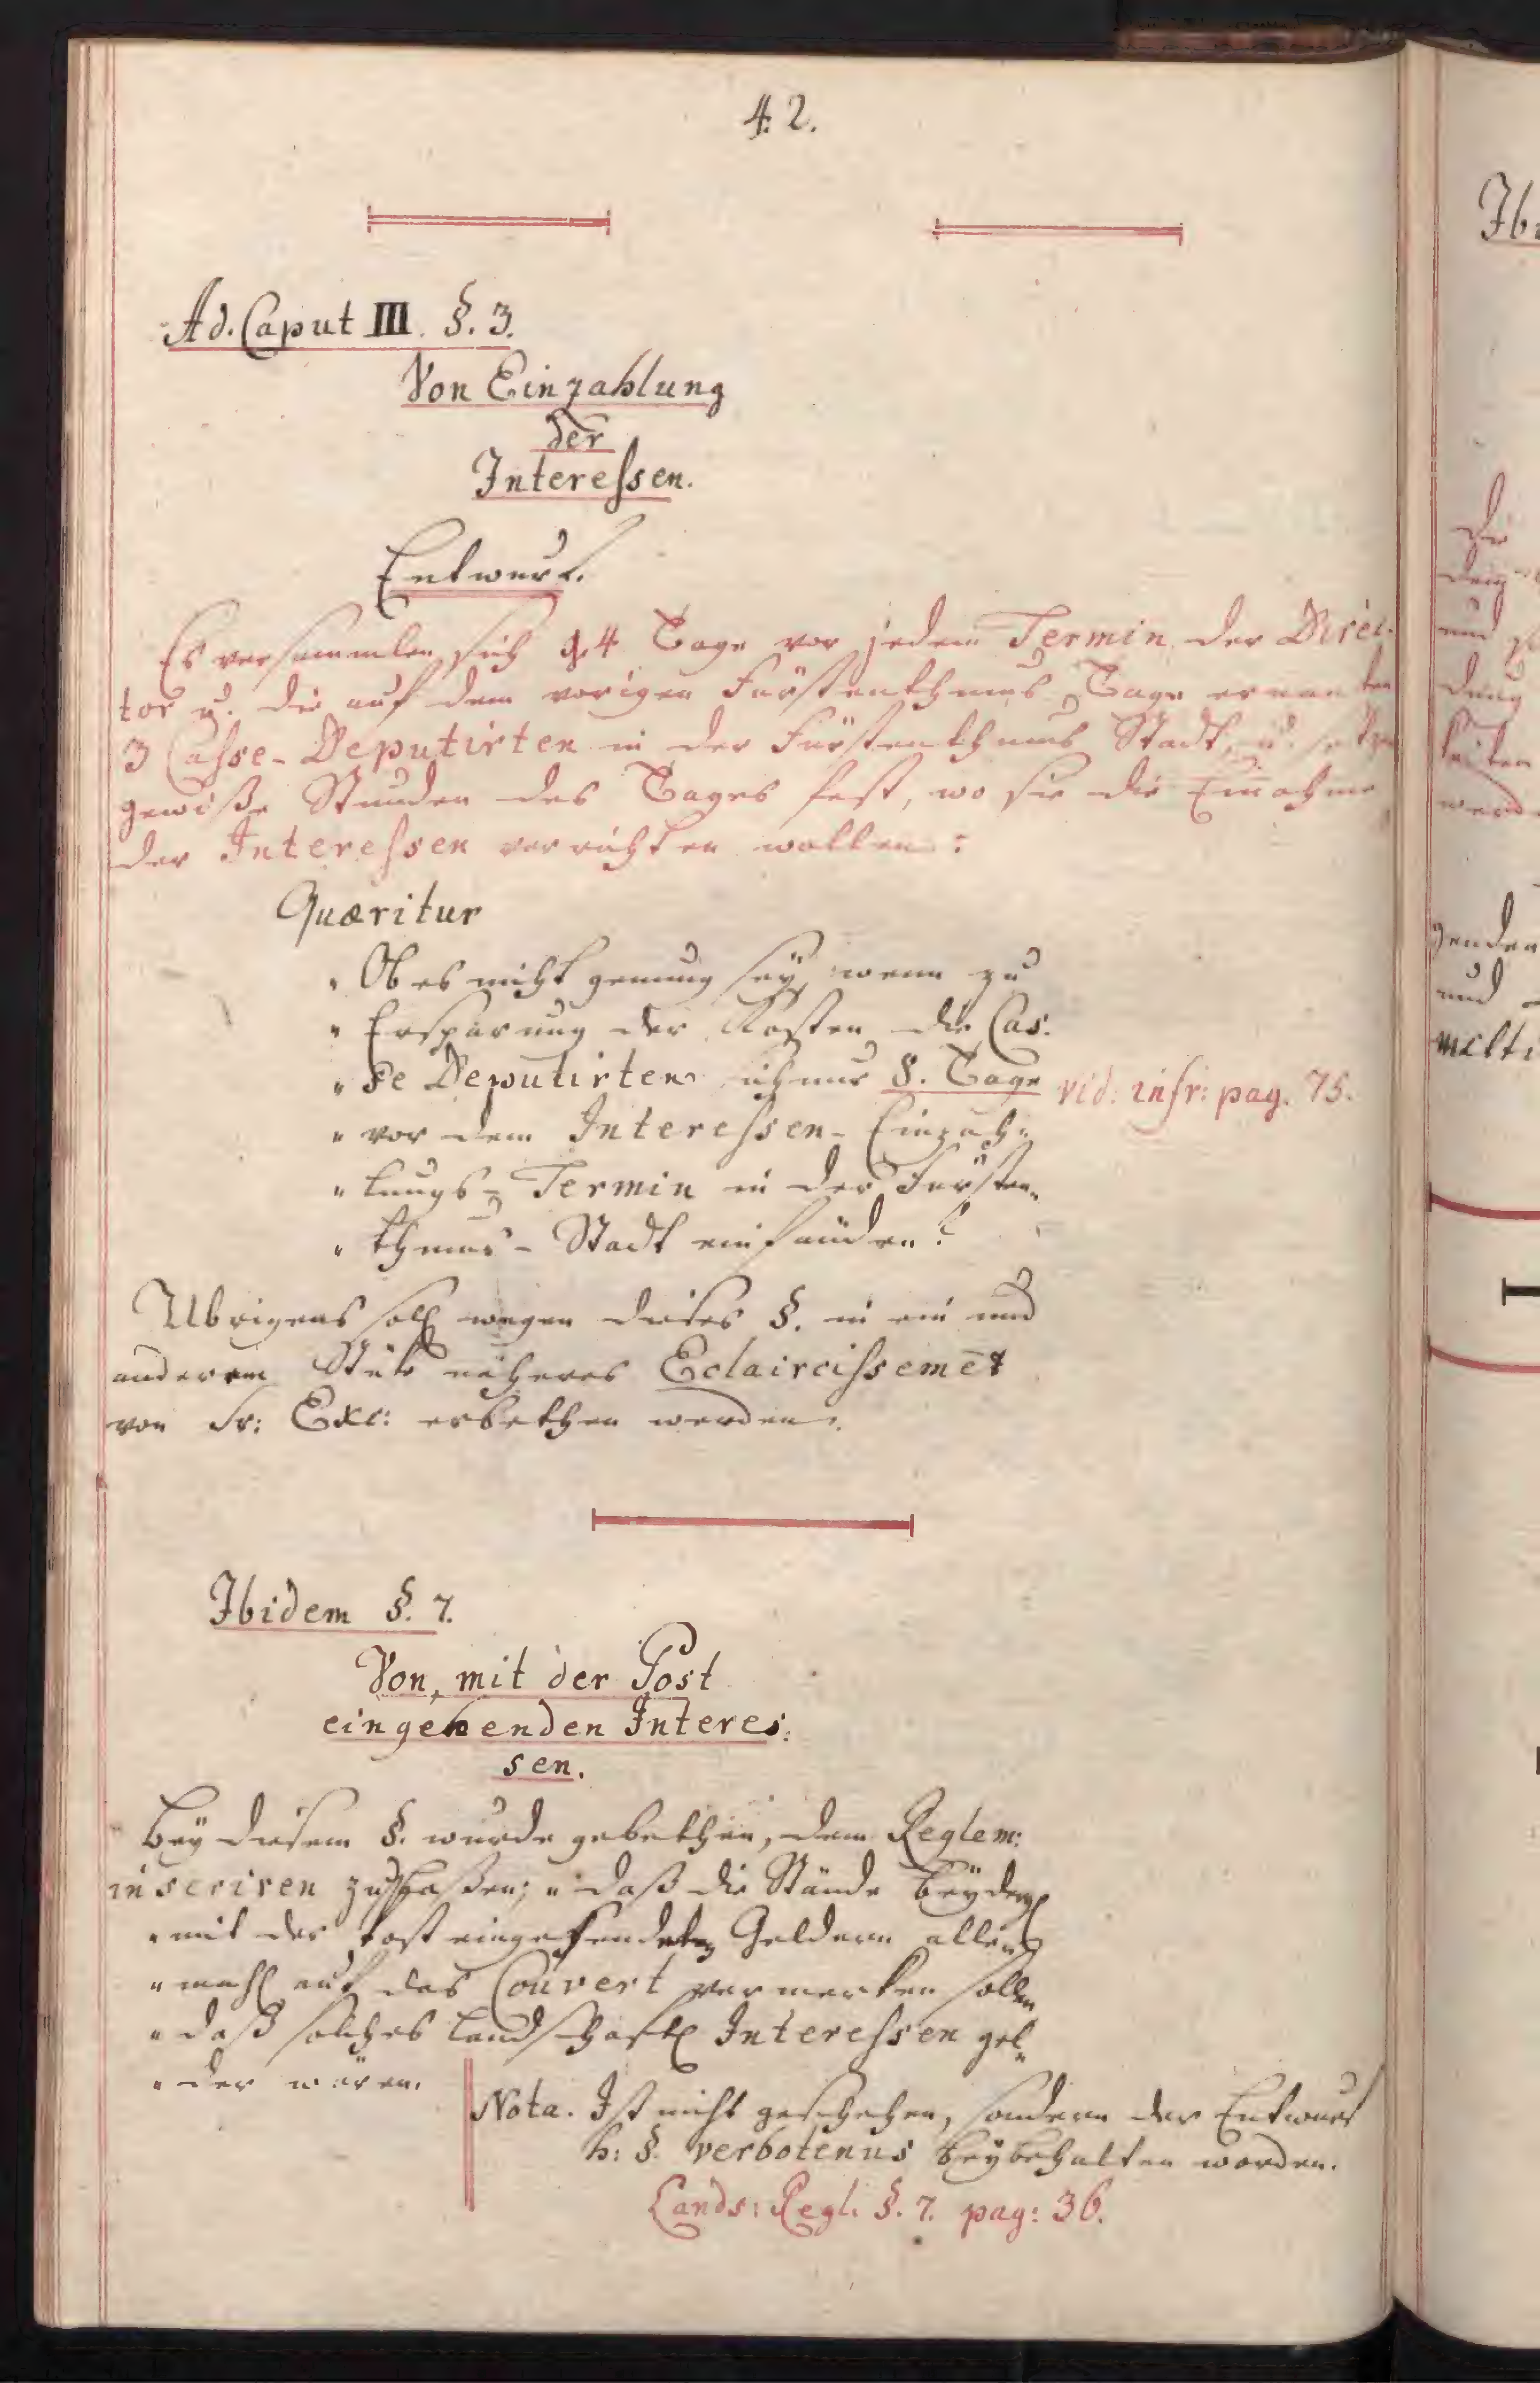 42.
Ad. Caput III. §. 3.
Von Einzahlung
der
Interessen.
Entwurf.
Es versammlen sich 14 Tage vor jedem Termin der Direc-
tor u. die auf dem vorigen Fürstenthums Tage ernanten
3 Casse-Deputirten in der Fürstenthums Stadt, u. setzen
gewiße Stunden des Tages fest, wo sie die Einahme
der Interessen verrichten wollen:
Quæritur
" Ob es nicht genung seÿ, wenn zu
" Ersparung der Kosten die Cas-
" se Deputirten nur 8. Tage vid: infr: pag. 75.
" vor dem Interessen-Einzah-
" lungs-Termin in der Fürsten-
" thums-Stadt einfänden?
Ubrigens soll wegen dieses §. in ein und
anderem Stük näheres Eclaircissemēt
von Sr: Exc: erbethen werden.
Ibidem §. 7.
Von, mit der Post
eingehenden Interes:
sen.
Beÿ diesem §. wurde gebethen, dem Reglem:
inseriren zu lassen; " daß die Stände beÿ den
" mit der Post eingesendeten Geldern alle
" mahl auf das Couvert vermerken sollen
" daß solches landschaftl Interessen gel-
" der wären.
Nota. Ist nicht geschehen, sondern der Entwurf
h: §. verbotenus beÿbehalten worden.
Lands: Regl. §. 7. pag: 36.